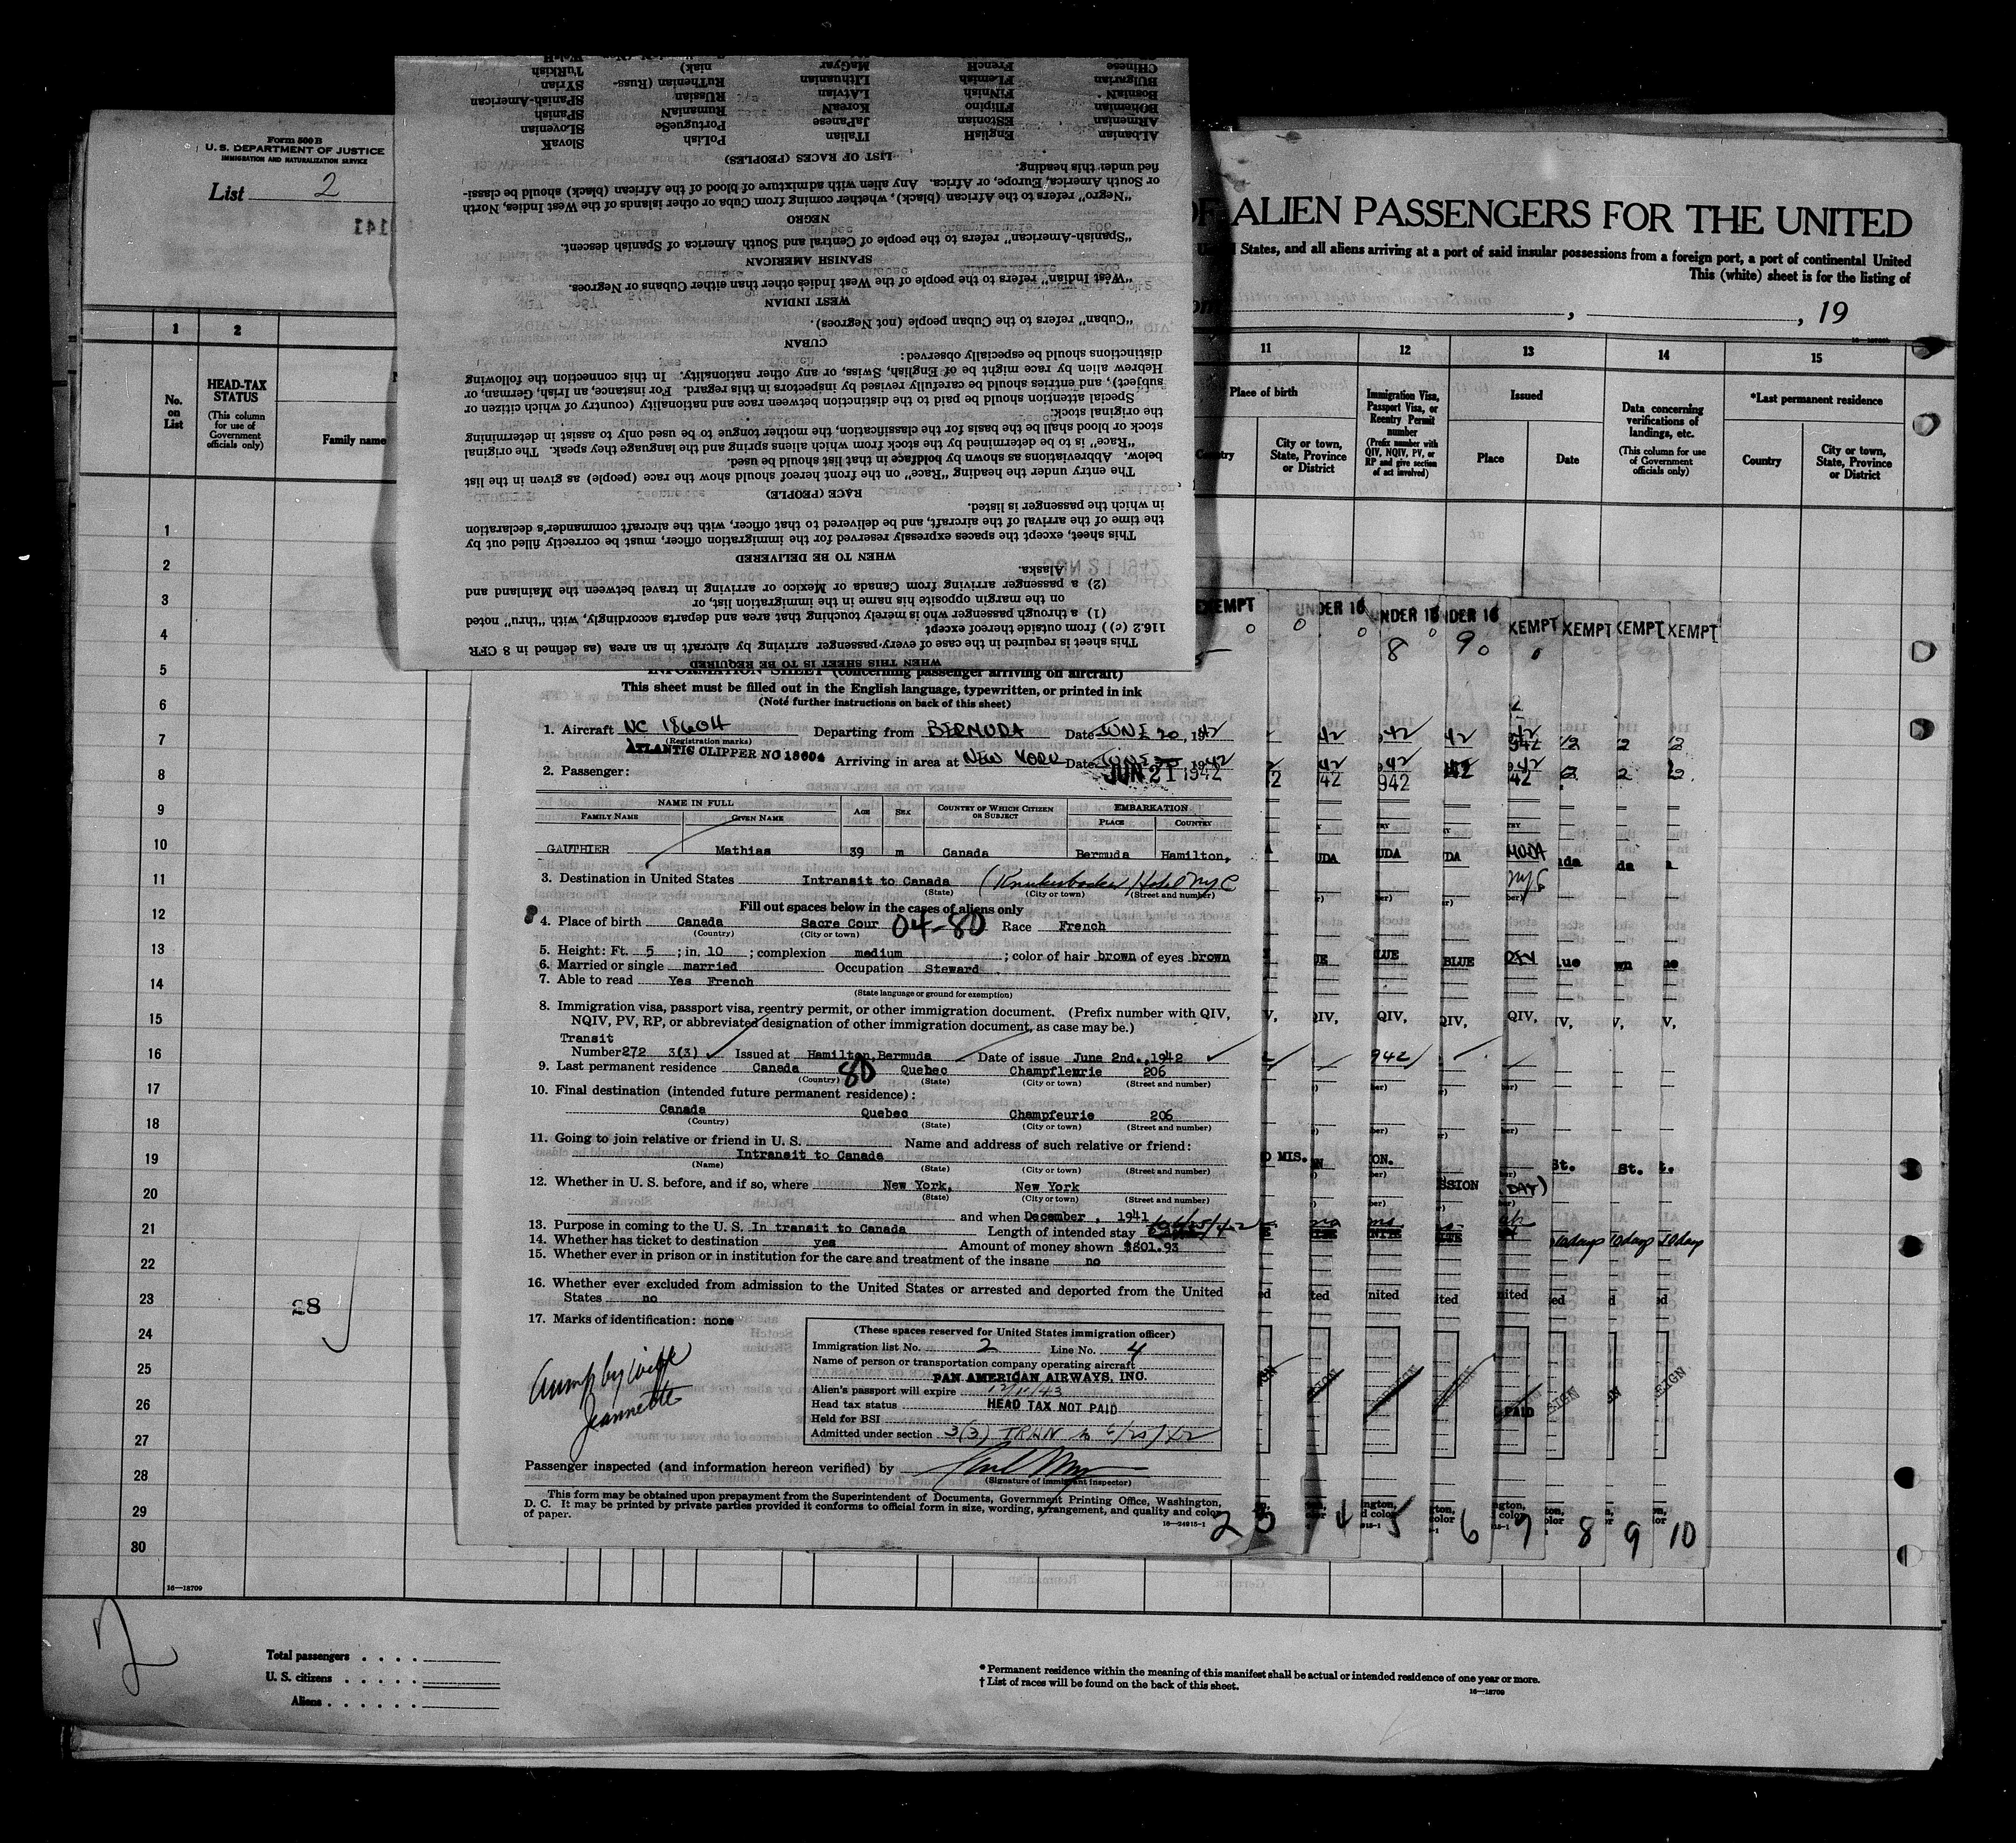 Form 500 B
U. S. DEPARTMENT OF JUSTICE
IMMIGRATION AND NATURALIZATION SERVICE
List 2
141
OF ALIEN PASSENGERS FOR THE UNITED
United States, and all aliens arriving at a port of said insular possessions from a foreign port, a port of continental United
This (white) sheet is for the listing of
, , 19
1 2
No. on List
HEAD-TAX STATUS
(This column for use of Government officials only)
Family name
11 12 13 14 15
Place of birth
Country
City or town, State, Province or District
Immigration Visa, Passport Visa, or Reentry Permit number
(Prefix number with QIV, NQIV, PV, or RP and give section of act involved)
Issued
Place Date
Data concerning verifications of landings, etc.
(This column for use of Government officials only)
*Last permanent residence
Country
City or town, State, Province or District
WHEN THIS SHEET IS TO BE REQUIRED
This sheet is required in the case of every passenger arriving by aircraft in an area (as defined in 8 CFR
116.2 (c) ) from outside thereof except
(1) a through passenger who is merely touching that area and departs accordingly, with "thru" noted
on the margin opposite his name in the immigration list, or
(2) a passenger arriving from Canada or Mexico or arriving in travel between the Mainland and
Alaska.
WHEN TO BE DELIVERED
This sheet, except the spaces expressly reserved for the immigration officer, must be correctly filled out by
the time of the arrival of the aircraft, and be delivered to that officer, with the aircraft commander's declaration
in which the passenger is listed.
RACE (PEOPLE)
The entry under the heading "Race" on the front hereof should show the race (people) as given in the list
below. Abbreviations as shown by boldface in that list should be used.
"Race" is to be determined by the stock from which aliens spring and the language they speak. The original
stock or blood shall be the basis for the classification, the mother tongue to be used only to assist in determining
the original stock.
Special attention should be paid to the distinction between race and nationality (country of which citizen or
subject), and entries should be carefully revised by inspectors in this regard. For instance, an Irish, German, or
Hebrew alien by race might be of English, Swiss, or any other nationality. In this connection the following
distinctions should be especially observed:
CUBAN
"Cuban" refers to the Cuban people (not Negroes).
WEST INDIAN
"West Indian" refers to the people of the West Indies other than either Cubans or Negroes.
SPANISH AMERICAN
"Spanish-American" refers to the people of Central and South America of Spanish descent.
NEGRO
"Negro" refers to the African (black), whether coming from Cuba or other islands of the West Indies, North
or South America, Europe, or Africa. Any alien with admixture of blood of the African (black) should be classi-
fied under this heading.
LIST OF RACES (PEOPLES)
ALbanian EnglisH ITalian PoLish SlovaK
ARmenian EStonian JaPanese PortugueSe SLOvenian
BOhemian FIlipino KoreaN RumaniaN SPanish
BosniaN FiNnish LAtvian RUssian SPanish-American
BUlgarian FLemish LIthuanian RuThenian (Russ- SYrian
CHinese FrencH MaGyar niak) TuRkish
INFORMATION SHEET (concerning passenger arriving on aircraft)
This sheet must be filled out in the English language, typewritten, or printed in ink
(Note further instructions on back of this sheet)
1. Aircraft NC 18604 Departing from BERMUDA Date JUNE 20, 1942
(Registration marks)
ATLANTIC CLIPPER NC 18604 Arriving in area at NEW YORK Date JUNE 20 1942
JUN 21 1942
2. Passenger:
NAME IN FULL
FAMILY NAME GIVEN NAME AGE SEX COUNTRY OF WHICH CITIZEN OR SUBJECT EMBARKATION PLACE COUNTRY
GAUTHIER Mathias 39 m Canada Bermuda Hamilton,
3. Destination in United States Intransit to Canada (Knickerbocker Hotel NYC
(State) (City or town) (Street and number)
Fill out spaces below in the cases of aliens only
4. Place of birth Canada Sacre Cour 04-80 Race French
(Country) (City or town)
5. Height: Ft. 5 ; in. 10 ; complexion medium ; color of hair brown of eyes brown
6. Married or single married Occupation Steward
7. Able to read Yes French
(State language or ground for exemption)
8. Immigration visa, passport visa, reentry permit, or other immigration document. (Prefix number with QIV,
NQIV, PV, RP, or abbreviated designation of other immigration document, as case may be.)
Transit
Number 272 3(3) Issued at Hamilton, Bermuda Date of issue June 2nd., 1942
9. Last permanent residence Canada 80 Quebec Champfleurie 206
(Country) (State) (City or town) (Street and number)
10. Final destination (intended future permanent residence):
Canada Quebec Champfeurie 206
(Country) (State) (City or town) (Street and number)
11. Going to join relative or friend in U. S. Name and address of such relative or friend:
Intransit to Canada
(Name) (State) (City or town) (Street and number)
12. Whether in U. S. before, and if so, where New York, New York
(State) (City or town) (Street and number)
and when December , 1941
13. Purpose in coming to the U. S. In transit to Canada Length of intended stay
14. Whether has ticket to destination yes Amount of money shown $801.93
15. Whether ever in prison or in institution for the care and treatment of the insane no
16. Whether ever excluded from admission to the United States or arrested and deported from the United
States no
17. Marks of identification: none
(These spaces reserved for United States immigration officer)
Immigration list No. 2 Line No. 4
Name of person or transportation company operating aircraft
PAN AMERICAN AIRWAYS, INC.
Alien's passport will expire 12/11/43
Head tax status HEAD TAX NOT PAID
Held for BSI
Admitted under section 3(3)
by wife
Jeannette
Passenger inspected (and information hereon verified) by
(Signature of immigrant inspector)
This form may be obtained upon prepayment from the Superintendent of Documents, Government Printing Office, Washington,
D. C. It may be printed by private parties provided it conforms to official form in size, wording, arrangement, and quality and color
of paper.
16—24915-1
2 3 4 5 6 7 8 9 10
EXEMPT UNDER 16 UNDER 16 UNDER 16 XEMPT XEMPT XEMPT XEMPT
8 9
BLUE
10 days 10 days 10 days
1
2
3
4
5
6
7
8
9
10
11
12
13
14
15
16
17
18
19
20
21
22
23
28
24
25
26
27
28
29
30
16—18709
2
Total passengers
U. S. citizens
Aliens
* Permanent residence within the meaning of this manifest shall be actual or intended residence of one year or more.
† List of races will be found on the back of this sheet.
16—18709